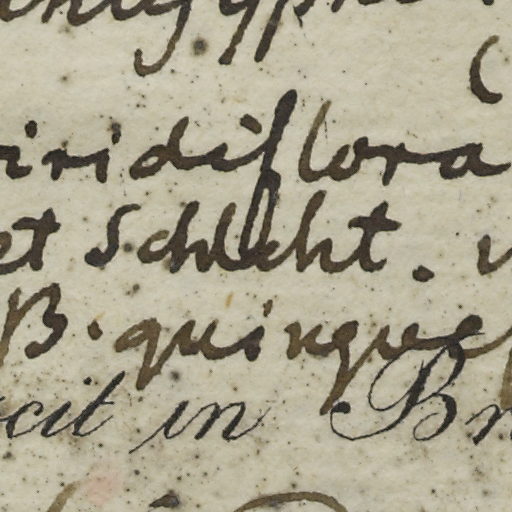 (
iridiflora
et Schlcht.
B. quinque
cit in Br